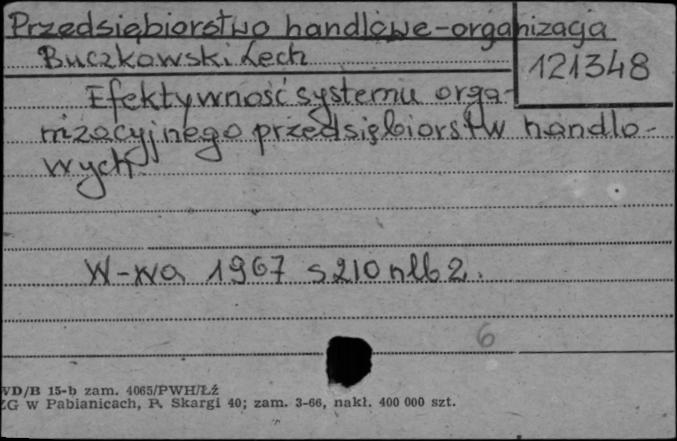 Przedsiębiorstwo handlowe-organizacja
Buczkowski Lech
121348
Efektywność systemu orga-
nizacyjnego przedsiębiorstw handlo-
wych
W-wa 1967 s 210 nlb 2.
6
WD/B 15-b zam. 4065/PWH/Łź
ZG w Pabianicach, P. Skargi 40; zam. 3-66, nakł. 400 000 szt.